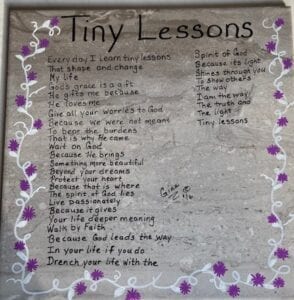 Tiny Lessons
Every day I learn tiny lessons
That shape and change
My life
Gods grace is a gift
He gifts me because
He loves me
Give all your worries to God
Because we were not meant
To bear the burdens
That is why He came
Wait on God
Because He brings
Something more beautiful
Beyond your dreams
Protect your heart
Because that is where
The spirit of God lies
Live passionately
Because it gives
Your life deeper meaning
Walk by Faith
Because God leads the way
In your life if you do
Drench your life with the
Spirit of God
Because its light
Shines through you
To show others
The way
I am the way
The truth and
The light
Tiny lessons